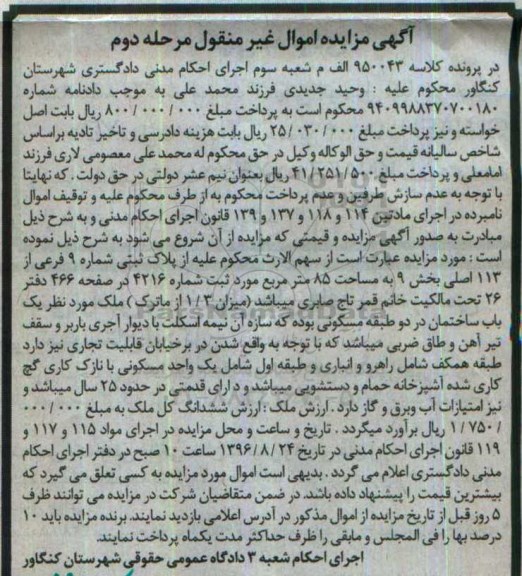 آگهی مزایده اموال غیر منقول مرحله دوم
در پرونده کلاسه ۹۵۰۰۴۳ الف م شعبه سوم اجرای احکام مدنی دادگستری شهرستان
کنگاور محکوم علیه : وحید جدیدی فرزند محمد علی به موجب دادنامه شماره
۹۴۰۹۹۸۸۳۷۰۷۰۰۱۸۰ محکوم است به پرداخت مبلغ ۸۰۰/۰۰۰/۰۰۰ ریال بابت اصل
خواسته و نیز پرداخت مبلغ ۲۵/۰۳۰/۰۰۰ ریال بابت هزینه دادرسی و تاخیر تادیه براساس
شاخص سالیانه قیمت و حق الوکاله وکیل در حق محکوم له محمد علی معصومی لاری فرزند
امامعلی و پرداخت مبلغ ۴۱/۲۵۱/۵۰۰ ریال بعنوان نیم عشر دولتی در حق دولت . که نهایتا
با توجه به عدم سازش طرفین و عدم پرداخت محکوم به از طرف محکوم علیه و توقیف اموال
نامبرده در اجرای مادتین ۱۱۴ و ۱۱۸ و ۱۳۷ و ۱۳۹ قانون اجرای احکام مدنی و به شرح ذیل
مبادرت به صدور آگهی مزایده و قیمتی که مزایده از آن شروع می شود به شرح ذیل نموده
است : مورد مزایده عبارت است از سهم الارث محکوم علیه از پلاک ثبتی شماره ۹ فرعی از
۱۱۳ اصلی بخش ۹ به مساحت ۸۵ متر مربع مورد ثبت شماره ۴۲۱۶ در صفحه ۴۶۶ دفتر
۲۶ تحت مالکیت خانم قمر تاج صابری میباشد (میزان ۱/۳ از ماترک ) ملک مورد نظر یک
باب ساختمان در دو طبقه مسکونی بوده که سازه آن نیمه اسکلت با دیوار آجری باربر و سقف
تیر آهن و طاق ضربی میباشد که با توجه به واقع شدن در برخیابان قابلیت تجاری نیز دارد
طبقه همکف شامل راهرو و انباری و طبقه اول شامل یک واحد مسکونی با نازک کاری گچ
کاری شده آشپزخانه حمام و دستشویی میباشد و دارای قدمتی در حدود ۲۵ سال میباشد و
نیز امتیازات آب وبرق و گاز دارد . ارزش ملک : ارزش ششدانگ کل ملک به مبلغ ۰۰۰/۰۰۰
/ ۱/۷۵۰ ریال برآورد میگردد . تاریخ و ساعت و محل مزایده در اجرای مواد ۱۱۵ و ۱۱۷ و
۱۱۹ قانون اجرای احکام مدنی در تاریخ ۱۳۹۶/۸/۲۴ ساعت ۱۰ صبح در دفتر اجرای احکام
مدنی دادگستری اعلام می گردد . بدیهی است اموال مورد مزایده به کسی تعلق می گیرد که
بیشترین قیمت را پیشنهاد داده باشد. در ضمن متقاضیان شرکت در مزایده می توانند ظرف
۵ روز قبل از تاریخ مزایده از اموال مذکور در آدرس اعلامی بازدید نمایند. برنده مزایده باید ۱۰
درصد بها را فی المجلس و مابقی را ظرف حداکثر مدت یکماه پرداخت نمایند.
اجرای احکام شعبه ۳ دادگاه عمومی حقوقی شهرستان کنگاور